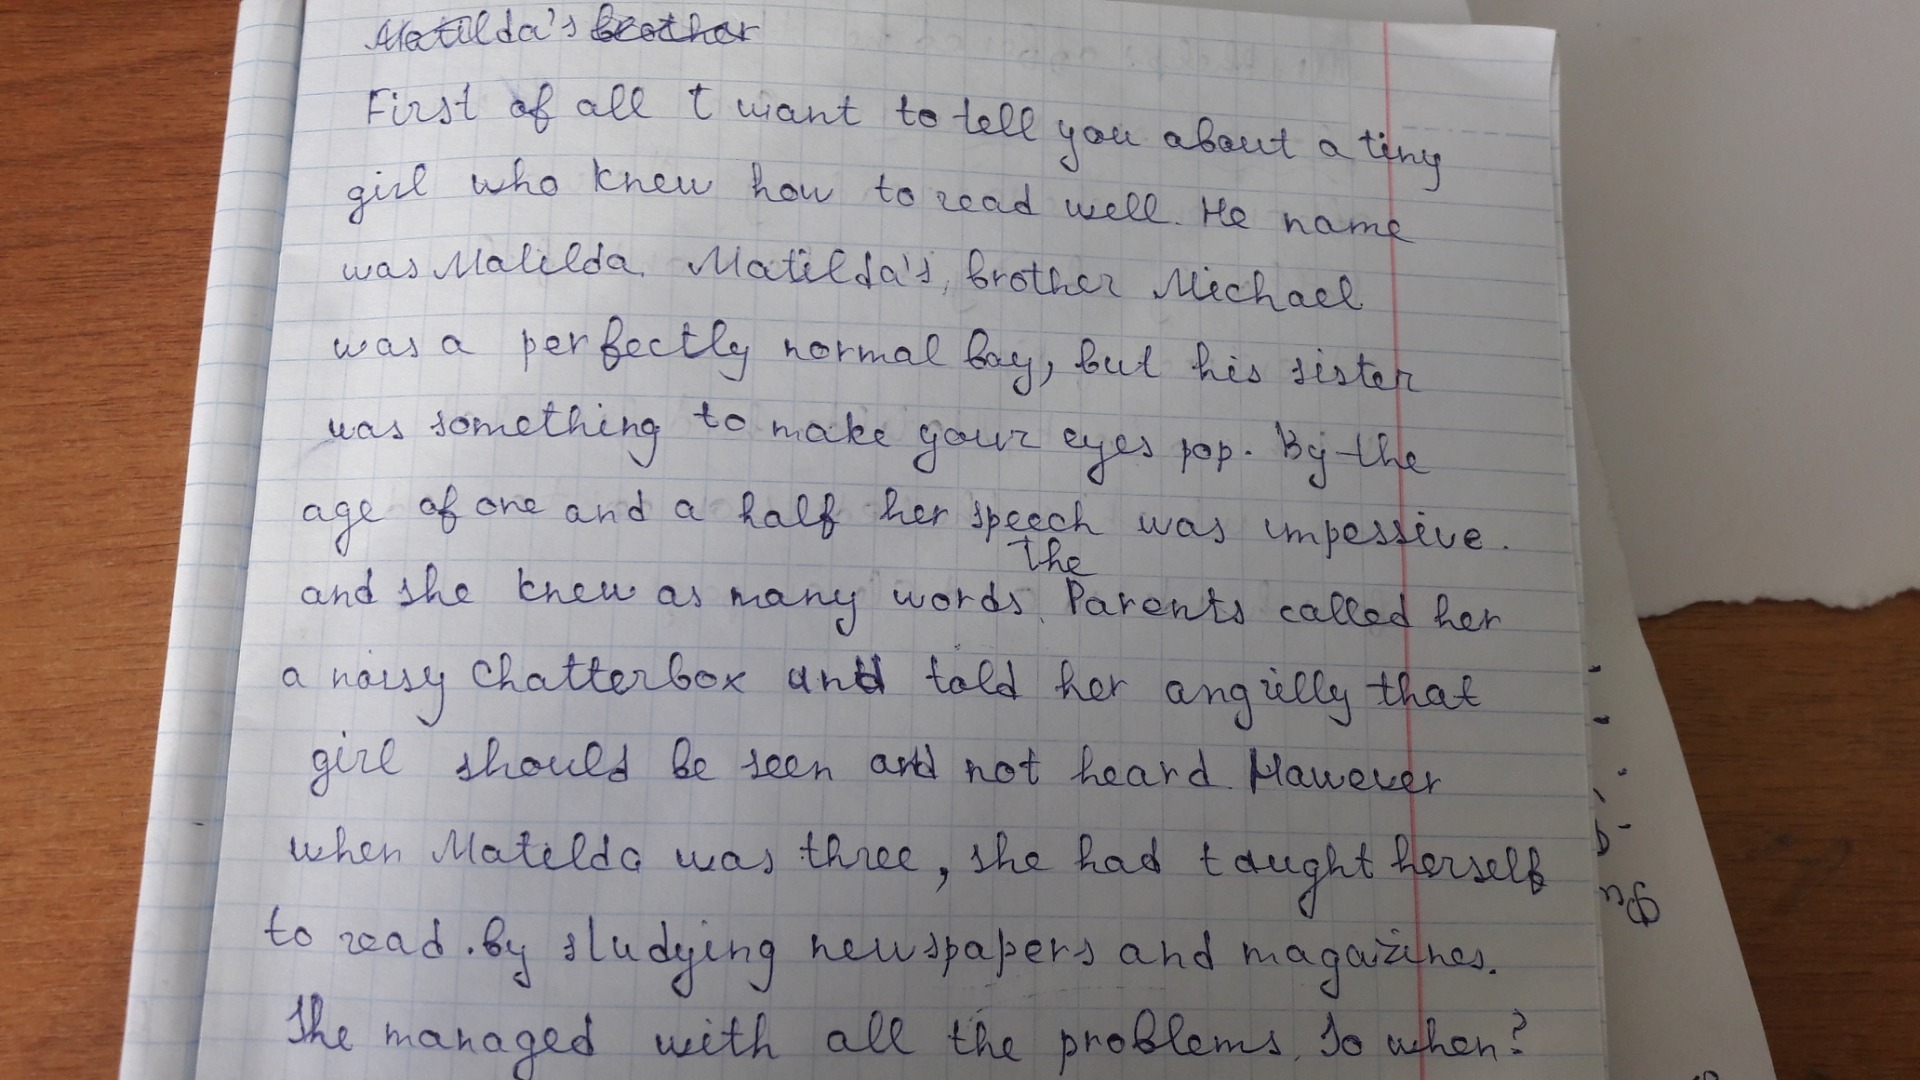 Matilda's brother
First of all I want to tell you about a tiny
girl who knew how to read well. He name
was Matilda. Matilda's, brother Michael
was a perfectly normal boy, but his sister
was something to make your eyes pop. By the
age of one and a half her speech was impessive.
the
and she knew as many words. Parents called her
a noisy chatterbox and told her angrilly that
girl should be seen and not heard. However
when Matilda was three, she had taught herself
to read. by studying newspapers and magazines.
She managed with all the problems. So when?